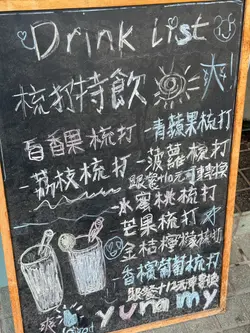 Drink List
梳打特飲 爽
百香果梳打
-荔枝梳打
-青蘋果梳打
-菠蘿梳打
跟餐+10元可轉換
-水蜜桃梳打
芒果梳打
金桔檸檬梳打
香檳葡萄梳打
跟餐+12元
爽
Good
yummy